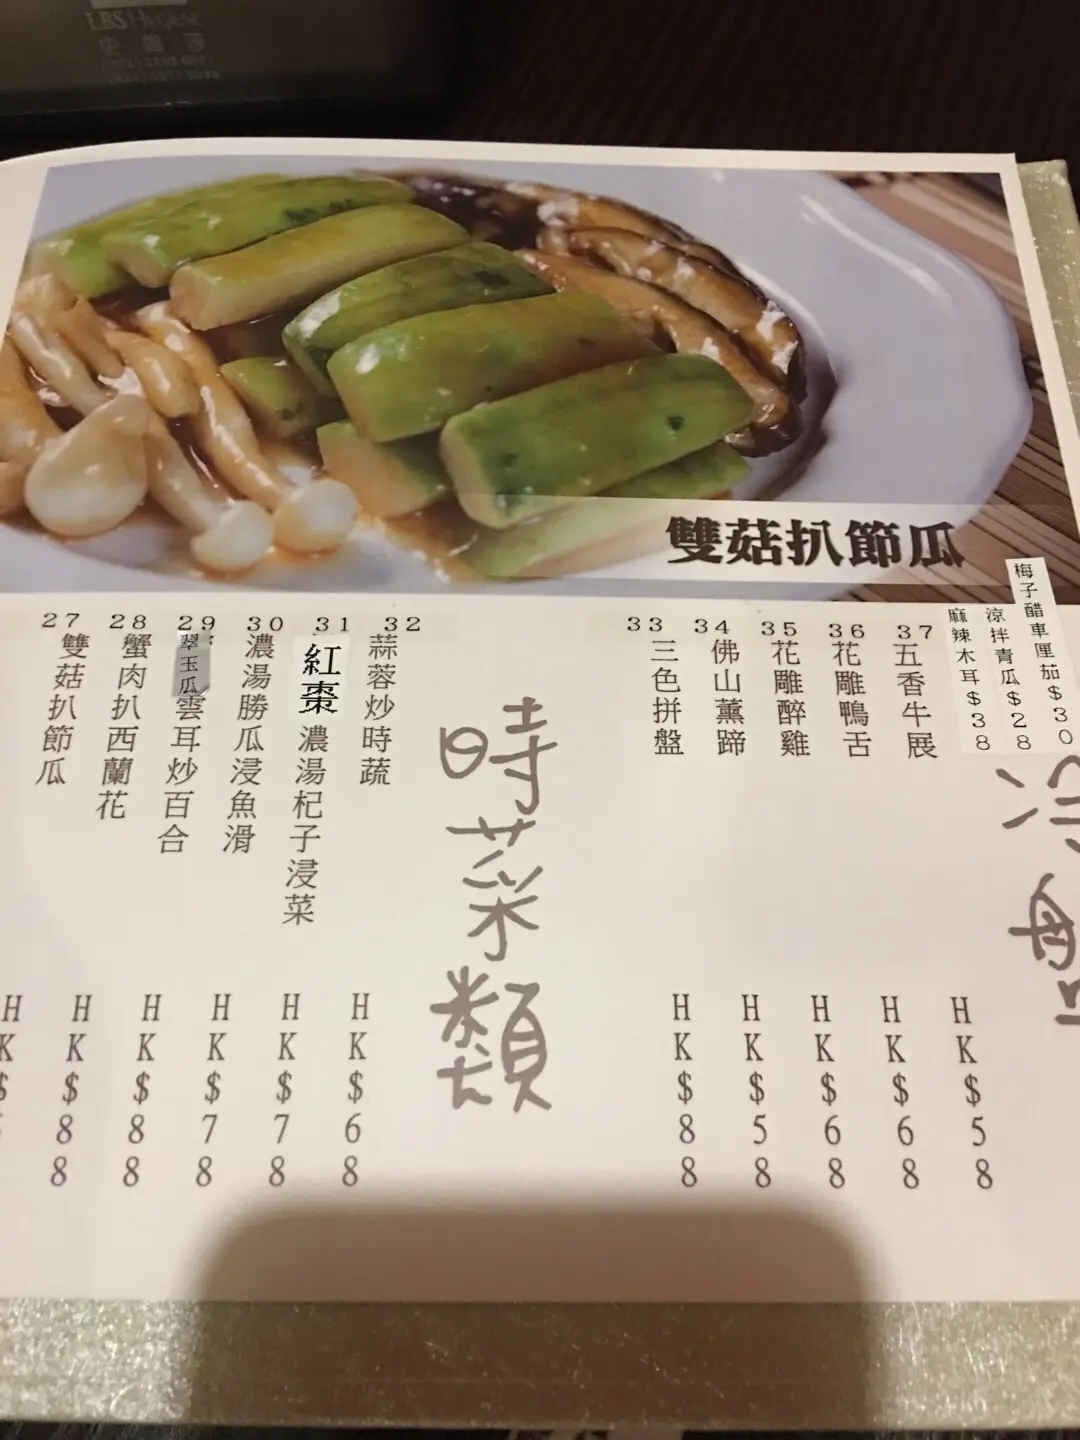 LBS HYGIENE
雙菇扒節瓜
梅子醋車厘茄$30
涼拌青瓜$28
麻辣木耳$38
37
五香牛展
HK$58
36
花雕鴨舌
HK$68
35
花雕醉雞
HK$68
34
佛山薰蹄
HK$58
33
三色拼盤
HK$88
時菜類
32
蒜蓉炒時蔬
HK$68
31
紅棗濃湯杞子浸菜
HK$78
30
濃湯勝瓜浸魚滑
HK$78
29
翠玉瓜雲耳炒百合
HK$88
28
蟹肉扒西蘭花
HK$88
27
雙菇扒節瓜
HK$